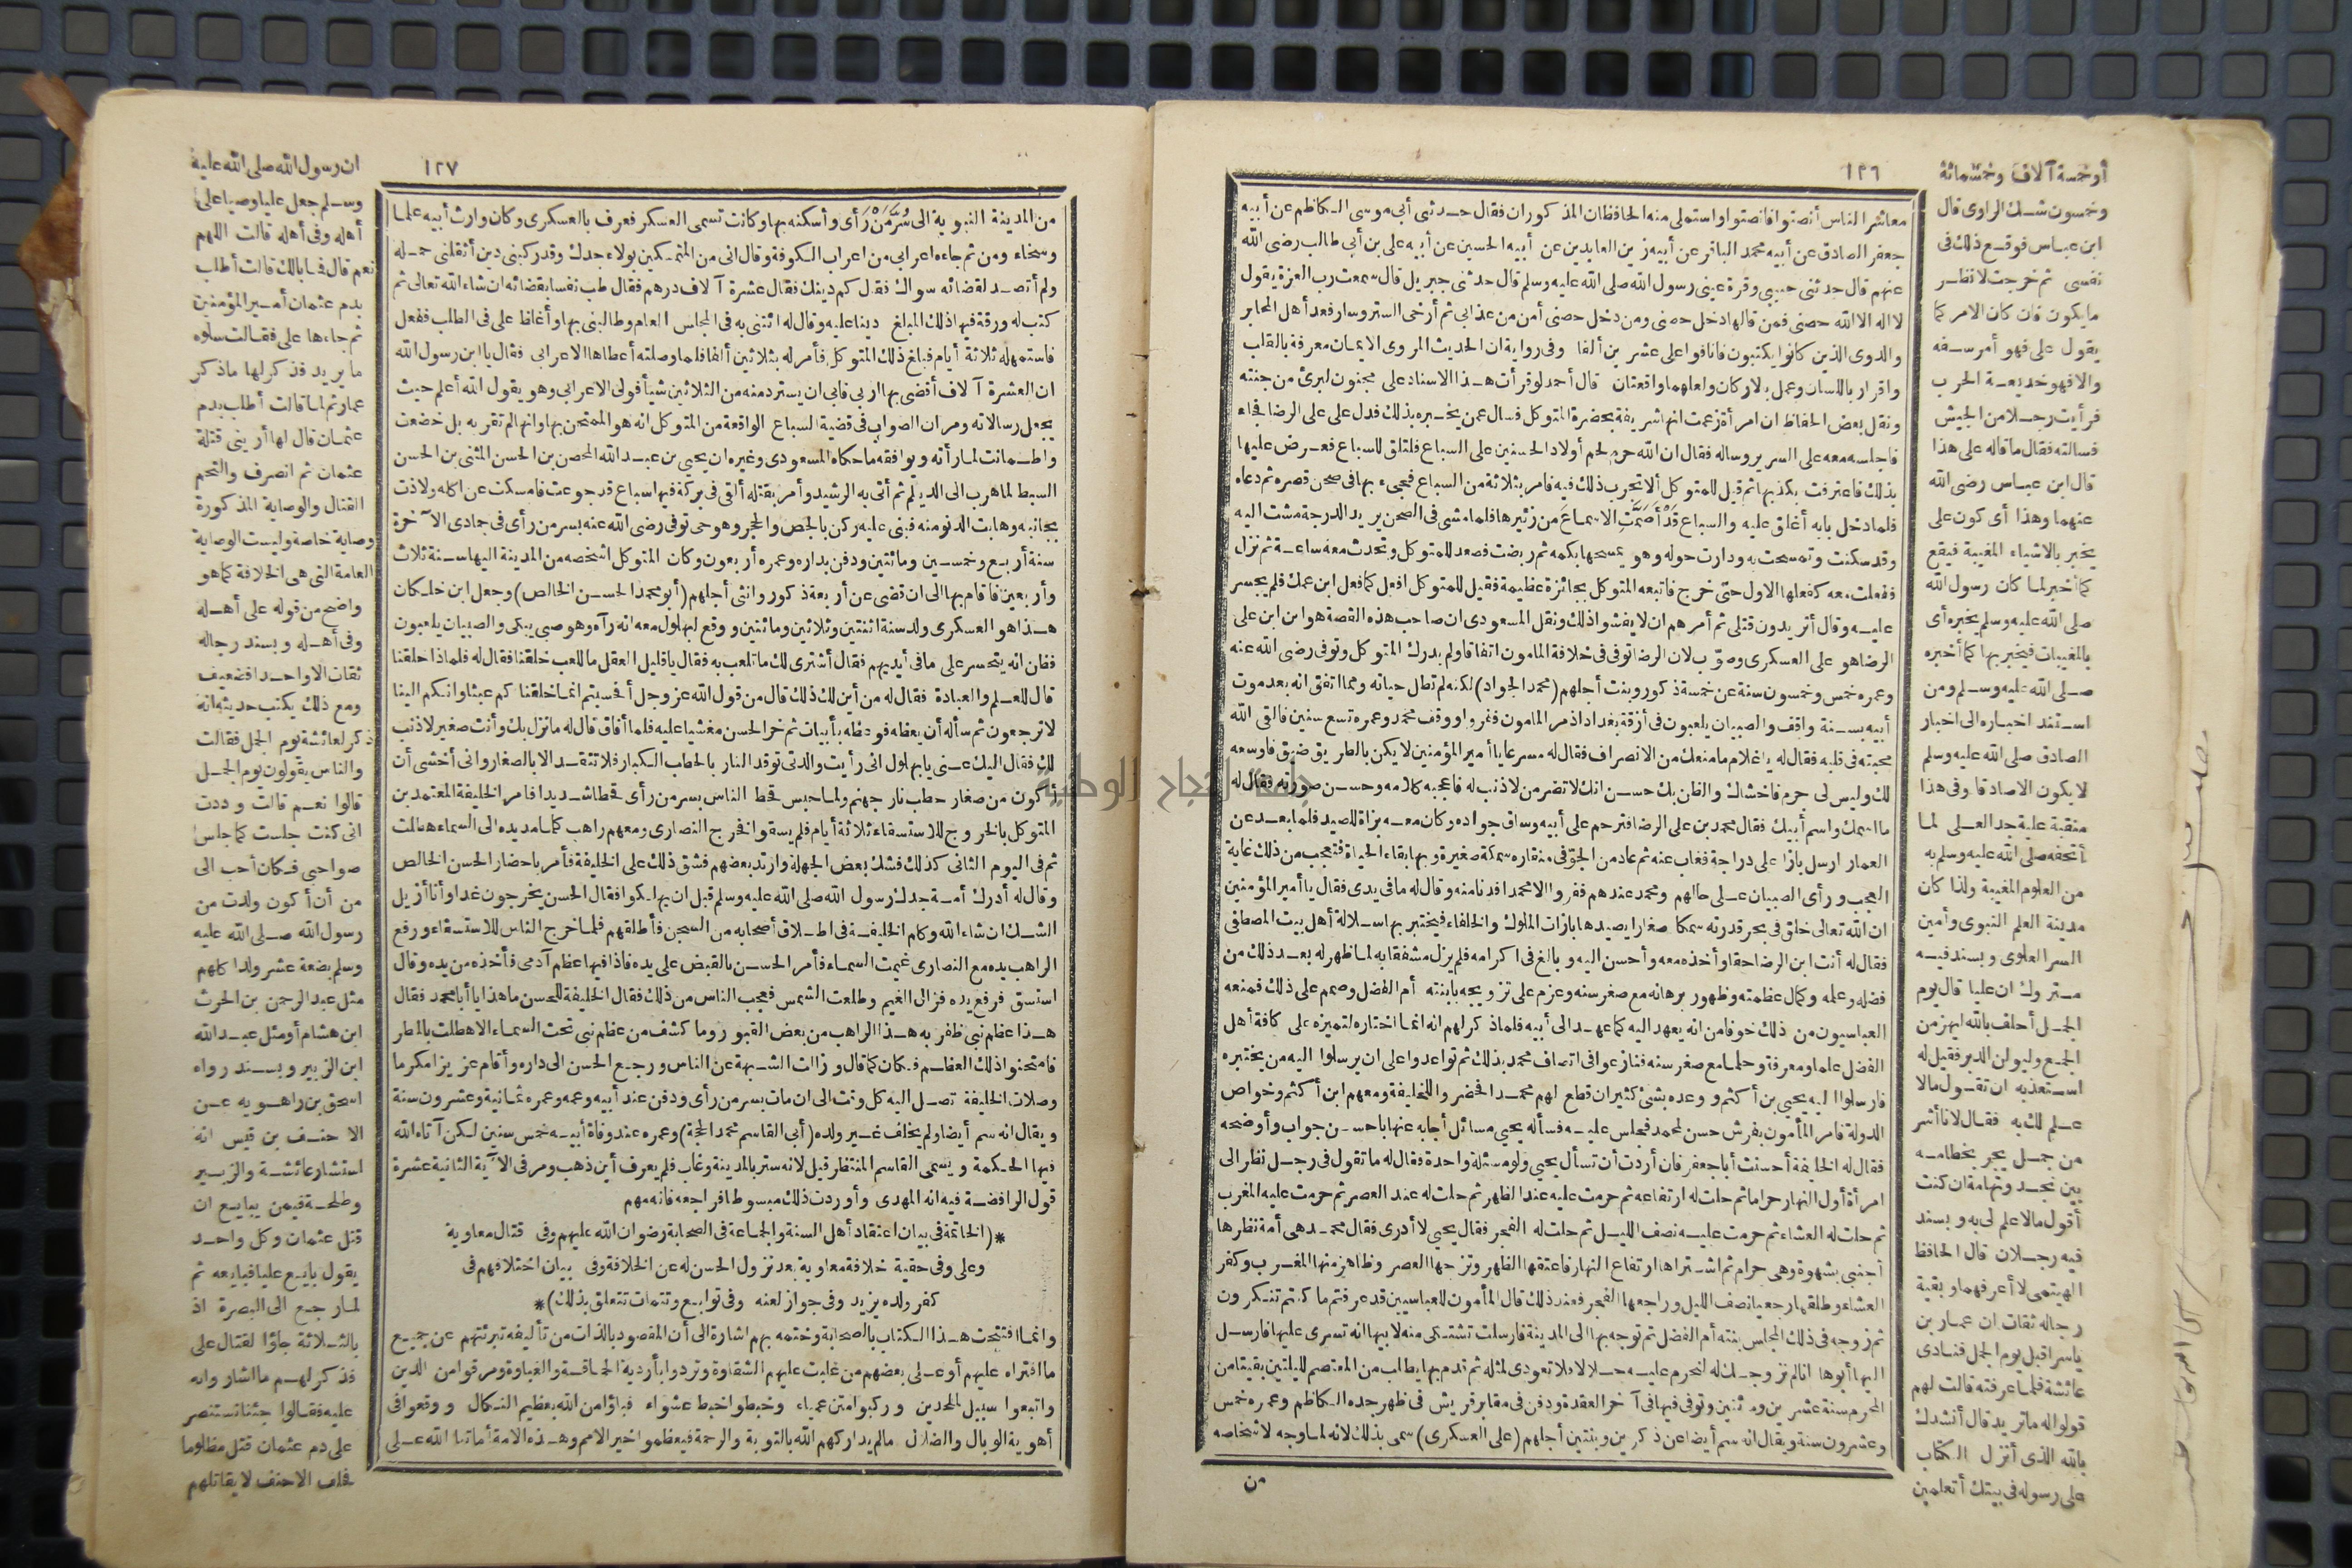 ١٢٦
معاشر الناس أنصتوا فانصتوا واستملى منه الحافظان المذكوران فقال حدثنى أبى موسى الكاظم عن أبيه
جعفر الصادق عن أبيه محمد الباقر عن أبيه زين العابدين عن أبيه الحسين عن أبيه على بن أبى طالب رضى الله
عنهم قال حدثنى حبيبى وقرة عينى رسول الله صلى الله عليه وسلم قال حدثنى جبريل قال سمعت رب العزة يقول
لا اله الا الله حصنى فمن قالها دخل حصنى ومن دخل حصنى أمن من عذابى ثم أرخى الستر وسار فعد أهل المحابر
والدوى الذين كانوا يكتبون فانافوا على عشرين ألفا وفى رواية ان الحديث المروى الايمان معرفة بالقلب
واقرار باللسان وعمل بالاركان ولعلهما واقعتان قال أحمد لو قرأت هذا الاسناد على مجنون لبرئ من جنته
ونقل بعض الحفاظ ان امرأة زعمت انها شريفة بحضرة المتوكل فسال عمن يخبره بذلك فدل على على الرضا فجاء
فاجلسه معه على السرير وساله فقال ان الله حرم لحم أولاد الحسنين على السباع فلتلق للسباع فعرض عليها
بذلك فاعترفت بكذبها ثم قيل للمتوكل ألا تجرب ذلك فيه فامر بثلاثة من السباع فجىء بها فى صحن قصره ثم دعاه
فلما دخل بابه أغلق عليه والسباع قد أصمت الاسماع من زئيرها فلما مشى فى الصحن يريد الدرجة مشت اليه
وقد سكنت وتمسحت به ودارت حوله وهو يمسحها بكمه ثم ربضت فصعد للمتوكل وتحدث معه ساعة ثم نزل
ففعلت معه كفعلها الاول حتى خرج فاتبعه المتوكل بجائزة عظيمة فقيل للمتوكل افعل كما فعل ابن عمك فلم يجسر
عليه وقال أتريدون قتلى ثم أمرهم ان لا يفشوا ذلك ونقل المسعودى ان صاحب هذه القصة هو ابن ابن على
الرضا هو على العسكرى وصوّب لان الرضا توفى فى خلافة المامون اتفاقا ولم يدرك المتوكل وتوفى رضى الله عنه
وعمره خمس وخمسون سنة عن خمسة ذكور وبنت أجلهم (محمد الجواد) لكنه لم تطل حياته ومما اتفق انه بعد موت
أبيه بسنة واقف والصبيان يلعبون فى أزقة بغداد اذ مر المامون ففروا ووقف محمد وعمره تسع سنين فالقى الله
محبته فى قلبه فقال له يا غلام ما منعك من الانصراف فقال له مسرعا يا أمير المؤمنين لا يكن بالطريق ضيق فاوسعه
لك وليس لى جرم فاخشاك والظن بك حسن انك لا تضر من لا ذنب له فاعجبه كلامه وحسن صورته فقال له
ما اسمك واسم أبيك فقال محمد بن على الرضا فترحم على أبيه وساق جواده وكان معه بزاة للصيد فلما بعد عن
العمار ارسل بازا على دراجة فغاب عنه ثم عاد من الجو فى منقاره سمكة صغيرة وبها بقاء الحياة فتعجب من ذلك غاية
العجب ورأى الصبيان على حالهم ومحمد عندهم ففروا الا محمدا فدنا منه وقال له ما فى يدى فقال يا أمير المؤمنين
ان الله تعالى خلق فى بحر قدرته سمكا صغارا يصيدها بازات الملوك والخلفاء فيختبر بها سلالة أهل بيت المصطفى
فقال له أنت ابن الرضا حقا وأخذه معه وأحسن اليه وبالغ فى اكرامه فلم يزل مشفقا به لما ظهر له بعد ذلك من
فضله وعلمه وكمال عظمته وظهور برهانه مع صغر سنه وعزم على تزويجه بابنته أم الفضل وصمم على ذلك فمنعه
العباسيون من ذلك خوفا من انه يعهد اليه كما عهد الى أبيه فلما ذكر لهم انه انما اختاره لتميزه على كافة أهل
الفضل علما ومعرفة وحلما مع صغر سنه فنازعوا فى اتصاف محمد بذلك ثم تواعدوا على ان يرسلوا اليه من يختبره
فارسلوا اليه يحيى بن أكثم ووعدوه بشئ كثير ان قطع لهم محمدا فحضروا للخليفة ومعهم ابن أكثم وخواص
الدولة فامر المأمون بفرش حسن لمحمد فجلس عليه فسأله يحيى مسائل أجابه عنها باحسن جواب وأوضحه
فقال له الخليفة أحسنت أبا جعفر فان أردت أن تسأل يحيى ولو مسئلة واحدة فقال له ما تقول فى رجل نظر الى
امرأة أول النهار حراما ثم حلت له ارتفاعه ثم حرمت عليه عند الظهر ثم حلت له عند العصر ثم حرمت عليه المغرب
ثم حلت له العشاء ثم حرمت عليه نصف الليل ثم حلت له الفجر فقال يحيى لا أدرى فقال محمد هى أمة نظرها
أجنبى بشهوة وهى حرام ثم اشتراها ارتفاع النهار فاعتقها الظهر وتزوجها العصر وظاهر منها المغرب وكفر
العشاء وطلقها رجعيا نصف الليل وراجعها الفجر فعند ذلك قال المأمون للعباسيين قد عرفتم ما كنتم تنكرون
ثم زوجه فى ذلك المجلس بنته أم الفضل ثم توجه بها الى المدينة فارسلت تشتكى منه لابيها انه تسرى عليها فارسل
اليها أبوها انا لم نزوجك له لنحرم عليه حلالا فلا تعودى لمثله ثم قدم بها بطلب من المعتصم لليلتين بقيتا من
المحرم سنة عشرين ومائتين وتوفى فيها فى آخر القعدة ودفن فى مقابر قريش فى ظهر جده الكاظم وعمره خمس
وعشرون سنة ويقال انه سم أيضا عن ذكرين وبنتين أجلهم (على العسكرى) سمى بذلك لانه لما وجه لاشخاصه
من
أو خمسة آلاف وخمسمائة
وخمسون شك الراوى قال
ابن عباس فوقع ذلك فى
نفسى ثم خرجت لانظر
ما يكون فان كان الامر كما
يقول على فهو أمر سفه
والا فهو خديعة الحرب
فرأيت رجلا من الجيش
فسالته فقال ما قاله على هذا
قال ابن عباس رضى الله
عنهما وهذا أى كون على
يخبر بالاشياء المغيبة فيقع
كما أخبر لما كان رسول الله
صلى الله عليه وسلم يخبره أى
بالمغيبات فيخبر بها كما أخبره
صلى الله عليه وسلم ومن
استند اخباره الى اخبار
الصادق صلى الله عليه وسلم
لا يكون الا صادقا وفى هذا
منقبة علية جد العلى لما
أتحفه صلى الله عليه وسلم به
من العلوم المغيبة ولذا كان
مدينة العلم النبوى وأمين
السر العلوى وبسند فيه
متروك ان عليا قال يوم
الجمل أحلف بالله ليهزمن
الجمع وليولن الدبر فقيل له
استعذ به ان تقول ما لا
علم لك به فقال لانا أشر
من جمل يجر بخطامه
بين نجد وتهامة ان كنت
أقول ما لا علم لى به وبسند
فيه رجلان قال الحافظ
الهيتمى لا أعرفهما وبقية
رجاله ثقات ان عمار بن
ياسر اقبل يوم الجمل فنادى
عائشة فلما عرفته قالت لهم
قولوا له ما تريد قال أنشدك
بالله الذى أنزل الكتاب
على رسوله فى بيتك أتعلمين
١٢٧
من المدينة النبوية الى سُرَّ مَنْ رَأى وأسكنه بها وكانت تسمى العسكر فعرف بالعسكرى وكان وارث أبيه علما
وسخاء ومن ثم جاءه اعرابى من اعراب الكوفة وقال انى من المتمسكين بولاء جدك وقد ركبنى دين أثقلنى حمله
ولم أقصد لقضائه سواك فقال كم دينك فقال عشرة آلاف درهم فقال طب نفسا بقضائه ان شاء الله تعالى ثم
كتب له ورقة فيها ذلك المبلغ دينا عليه وقال له ائتنى به فى المجلس العام وطالبنى بها وأغلظ على فى الطلب ففعل
فاستمهله ثلاثة أيام فبلغ ذلك المتوكل فأمر له بثلاثين ألفا فلما وصلته أعطاها الاعرابى فقال يا ابن رسول الله
ان العشرة آلاف أقضى بها اربى فابى ان يسترد منه من الثلاثين شيأ فولى الاعرابى وهو يقول الله أعلم حيث
يجعل رسالاته ومر ان الصواب فى قضية السباع الواقعة من المتوكل انه هو الممتحن بها وانها لم تقربه بل خضعت
واطمانت لما رأته ويوافقه ما حكاه المسعودى وغيره ان يحيى بن عبد الله المحض بن الحسن المثنى بن الحسن
السبط لما هرب الى الديلم ثم أتى به الرشيد وأمر بقتله ألقى فى بركة فيها سباع قد جوعت فامسكت عن اكله ولاذت
بجانبه وهابت الدنو منه فبنى عليه ركن بالجص والحجر وهو حى توفى رضى الله عنه بسر من رأى فى جمادى الآخرة
سنة أربع وخمسين ومائتين ودفن بداره وعمره أربعون وكان المتوكل اشخصه من المدينة اليها سنة ثلاث
وأربعين فاقام بها الى ان قضى عن أربعة ذكور وانثى أجلهم (أبو محمد الحسن الخالص) وجعل ابن خلكان
هذا هو العسكرى ولد سنة اثنتين وثلاثين ومائتين ووقع لبهلول معه انه رآه وهو صبى يبكى والصبيان يلعبون
فظن انه يتحسر على ما فى أيديهم فقال أشترى لك ما تلعب به فقال يا قليل العقل ما للعب خلقنا فقال له فلماذا خلقنا
قال للعلم والعبادة فقال له من أين لك ذلك قال من قول الله عز وجل أفحسبتم انما خلقناكم عبثا وانكم الينا
لا ترجعون ثم سأله أن يعظه فوعظه بأبيات ثم خر الحسن مغشيا عليه فلما أفاق قال له ما نزل بك وأنت صغير لا ذنب
لك فقال اليك عنى يا بهلول انى رأيت والدتى توقد النار بالحطب الكبار فلا تتقد الا بالصغار وانى أخشى أن
أكون من صغار حطب نار جهنم ولما حبس قحط الناس بسر من رأى قحطا شديدا فامر الخليفة المعتمد بن
المتوكل بالخروج للاستسقاء ثلاثة أيام فلم يسقوا فخرج النصارى ومعهم راهب كلما مد يده الى السماء هطلت
ثم فى اليوم الثانى كذلك فشك بعض الجهلة وارتد بعضهم فشق ذلك على الخليفة فأمر باحضار الحسن الخالص
وقال له أدرك أمة جدك رسول الله صلى الله عليه وسلم قبل ان يهلكوا فقال الحسن يخرجون غدا وأنا أزيل
الشك ان شاء الله وكلم الخليفة فى اطلاق أصحابه من السجن فأطلقهم فلما خرج الناس للاستسقاء ورفع
الراهب يده مع النصارى غيمت السماء فأمر الحسن بالقبض على يده فاذا فيها عظم آدمى فأخذه من يده وقال
استسق فرفع يده فزال الغيم وطلعت الشمس فعجب الناس من ذلك فقال الخليفة للحسن ما هذا يا أبا محمد فقال
هذا عظم نبى ظفر به هذا الراهب من بعض القبور وما كشف من عظم نبى تحت السماء الا هطلت بالمطر
فامتحنوا ذلك العظم فكان كما قال وزالت الشبهة عن الناس ورجع الحسن الى داره وأقام عزيزا مكرما
وصلات الخليفة تصل اليه كل وقت الى ان مات بسر من رأى ودفن عند أبيه وعمه وعمره ثمانية وعشرون سنة
ويقال انه سم أيضا ولم يخلف غير ولده (أبى القاسم محمد الحجة) وعمره عند وفاة أبيه خمس سنين لكن آتاه الله
فيها الحكمة ويسمى القاسم المنتظر قيل لانه ستر بالمدينة وغاب فلم يعرف أين ذهب ومر فى الآية الثانية عشرة
قول الرافضة فيه انه المهدى وأوردت ذلك مبسوطا فراجعه فانه مهم
*(الخاتمة فى بيان اعتقاد أهل السنة والجماعة فى الصحابة رضوان الله عليهم وفى قتال معاوية
وعلى وفى حقية خلافة معاوية بعد نزول الحسن له عن الخلافة وفى بيان اختلافهم فى
كفر ولده يزيد وفى جواز لعنه وفى توابع وتتمات تتعلق بذلك)*
وانما افتتحت هذا الكتاب بالصحابة وختمته بهم اشارة الى أن المقصود بالذات من تأليفه تبرئتهم عن جميع
ما افتراه عليهم أو على بعضهم من غلبت عليهم الشقاوة وتردوا بأردية الحماقة والغباوة ومرقوا من الدين
واتبعوا سبيل الملحدين وركبوا متن عمياء وخبطوا خبط عشواء فباؤا من الله بعظيم النكال ووقعوا فى
أهوية الوبال والضلال ما لم يداركهم الله بالتوبة والرحمة فيعظموا خير الامم وهذه الامة أماتنا الله على
ان رسول الله صلى الله عليه
وسلم جعل عليا وصيا على
أهله وفى أهله قالت اللهم
نعم قال فما بالك قالت أطلب
بدم عثمان أمير المؤمنين
ثم جاءها على فقالت سلوه
ما يريد فذكر لها ما ذكر
عمار ثم لما قالت أطلب بدم
عثمان قال لها أرينى قتلة
عثمان ثم انصرف والتحم
القتال والوصاية المذكورة
وصاية خاصة وليست الوصاية
العامة التى هى الخلافة كما هو
واضح من قوله على أهله
وفى أهله وبسند رجاله
ثقات الا واحدا فضعيف
ومع ذلك يكتب حديثه انه
ذكر لعائشة يوم الجمل فقالت
والناس يقولون يوم الجمل
قالوا نعم قالت وددت
انى كنت جلست كما جلس
صواحبى فكان أحب الى
من أن أكون ولدت من
رسول الله صلى الله عليه
وسلم بضعة عشر ولدا كلهم
مثل عبد الرحمن بن الحرث
ابن هشام أو مثل عبد الله
ابن الزبير وبسند رواه
اسحق بن راهويه عن
الاحنف بن قيس انه
استشار عائشة والزبير
وطلحة فيمن يبايع ان
قتل عثمان وكل واحد
يقول بايع عليا فبايعه ثم
لما رجع الى البصرة اذ
بالثلاثة جاؤا لقتال على
فذكر لهم ما اشاروا به
عليه فقالوا جئنا نستنصر
على دم عثمان قتل مظلوما
فحلف الاحنف لا يقاتلهم
جامعة النجاح الوطنية